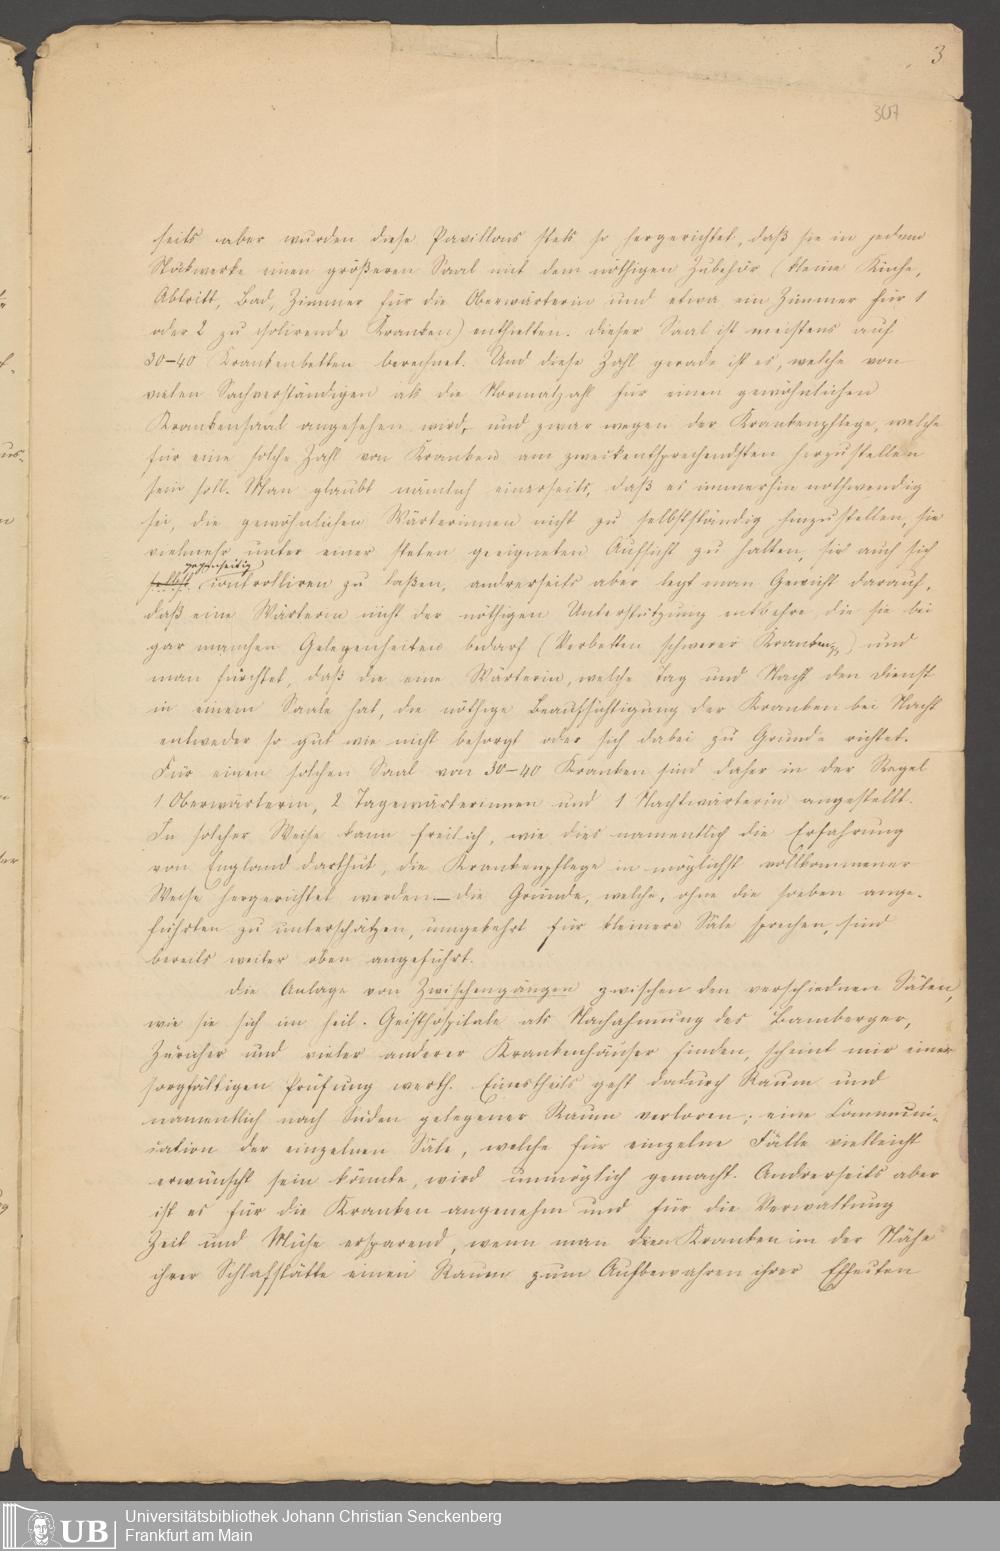 3
307
seits aber wurden diese Pavillons stets so hergerichtet, daß sie in jedem
Stockwerke einen größeren Saal mit dem nöthigen Zubehör (kleine Küche,
Abtritt, Bad, Zimmer für die Oberwärterin und etwa ein Zimmer für 1
oder 2 zu isolirende Kranken) enthielten. Dieser Saal ist meistens auf
30–40 Krankenbetten berechnet. Und diese Zahl gerade ist es, welche von
vielen Sachverständigen als die Normalzahl für einen gewöhnlichen
Krankensaal angesehen wird, und zwar wegen der Krankenpflege, welche
für eine solche Zahl von Kranken am zweckentsprechendsten herzustellen
sein soll. Man glaubt nämlich einerseits, daß es immerhin nothwendig
sei, die gewöhnlichen Wärterinnen nicht zu selbstständig hinzustellen, sie
vielmehr unter einer steten geeigneten Aufsicht zu halten, sie auch sich
gegenseitig
selbst controlliren zu laßen, andrerseits aber legt man Gewicht darauf,
daß eine Wärterin nicht der nöthigen Unterstützung entbehre, die sie bei
gar manchen Gelegenheiten bedarf (Verbetten schwerer Kranken) und
man fürchtet, daß die eine Wärterin, welche Tag und Nacht den Dienst
in einem Saale hat, die nöthige Beaufsichtigung der Kranken bei Nacht
entweder so gut wie nicht besorgt oder sich dabei zu Grunde richtet.
Für einen solchen Saal von 30–40 Kranken sind daher in der Regel
1 Oberwärterin, 2 Tagewärterinnen und 1 Nachtwärterin angestellt.
In solcher Weise kann freilich, wie dies namentlich die Erfahrung
von England darthut, die Krankenpflege in möglichst vollkommener
Weise hergerichtet werden – die Gründe, welche, ohne die soeben ange-
führten zu unterschätzen, umgekehrt für kleinere Säle sprechen, sind
bereits weiter oben angeführt.
Die Anlage von Zwischengängen zwischen den verschiednen Sälen,
wie sie sich im heil. Geisthospitale als Nachahmung des Bamberger,
Züricher und vieler anderer Krankenhäuser finden, scheint mir einer
sorgfältigen Prüfung werth. Einestheils geht dadurch Raum und
namentlich nach Süden gelegener Raum verloren; eine Communi-
cation der einzelnen Säle, welche für einzelne Fälle vielleicht
erwünscht sein könnte, wird unmöglich gemacht. Andrerseits aber
ist es für die Kranken angenehm und für die Verwaltung
Zeit und Mühe ersparend, wenn man den Kranken in der Nähe
ihrer Schlafstätte einen Raum zum Aufbewahren ihrer Effecten
UB
Universitätsbibliothek Johann Christian Senckenberg
Frankfurt am Main